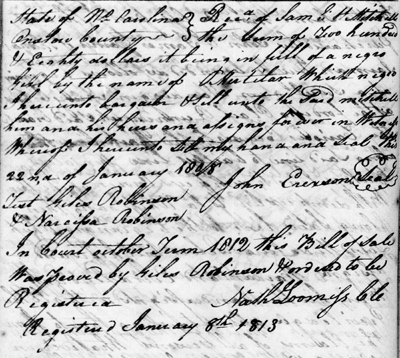 State of No. Carolina } Recd. of Saml. W. Mitchell
Onslow County } the Sum of Two hundred
& Eighty dollars it being in full of a negro
by the name of Which negro
I hereunto bargain & Sell unto the Said mitchell
him and his heirs and assigns for ever in Witness
Whereof I hereunto Set my hand and Seal this
22nd of January 1808
John Everson Seal
Test Giles Robinson
& Narcissa Robinson
In Court october Turm 1812 this Bill of Sale
Was proved by Giles Robinson & ordered to be
Registered
Nath Loomiss Clk
Registered January 8th 1813